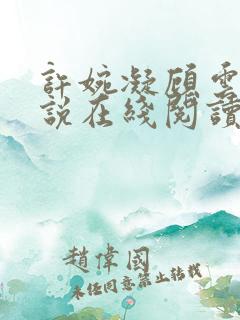 許婉凝顧雲
說在綫閱讀
趙偉國
未經同意禁止轉載